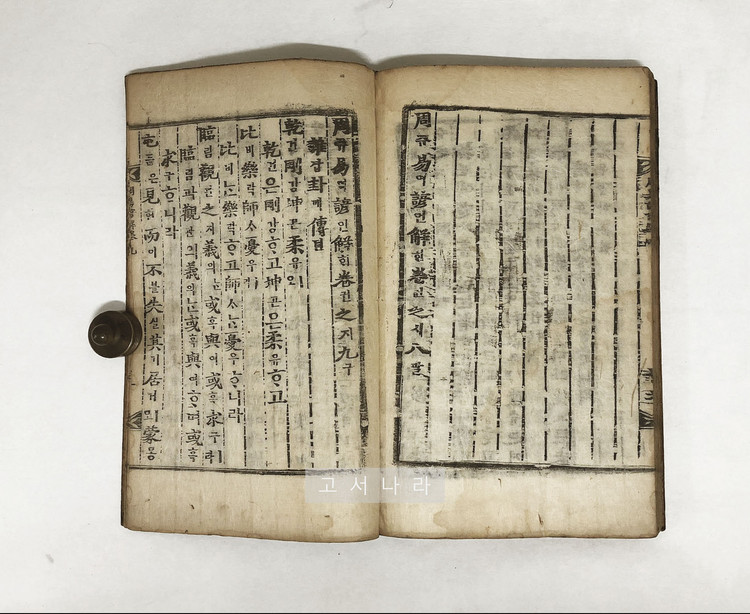 周쥬易역諺언解ᄒᆡ卷권之지八팔
周쥬易역諺언解ᄒᆡ卷권之지九구
雜잡卦괘傳뎐
乾건剛강坤곤柔유오
乾건은剛강ᄒᆞ고坤곤은柔유ᄒᆞ고
比비樂락師ᄉᆞ憂우
比비ᄂᆞᆫ樂락ᄒᆞ고師ᄉᆞᄂᆞᆫ憂우ᄒᆞ니라
臨림觀관之지義의ᄂᆞᆫ或혹與여或혹求구ㅣ
臨림과觀관의義의ᄂᆞᆫ或혹與여ᄒᆞ며或혹
求구ᄒᆞ니라
屯둔은見현而이不블失실其기居거ㅣ오蒙몽
고서나라